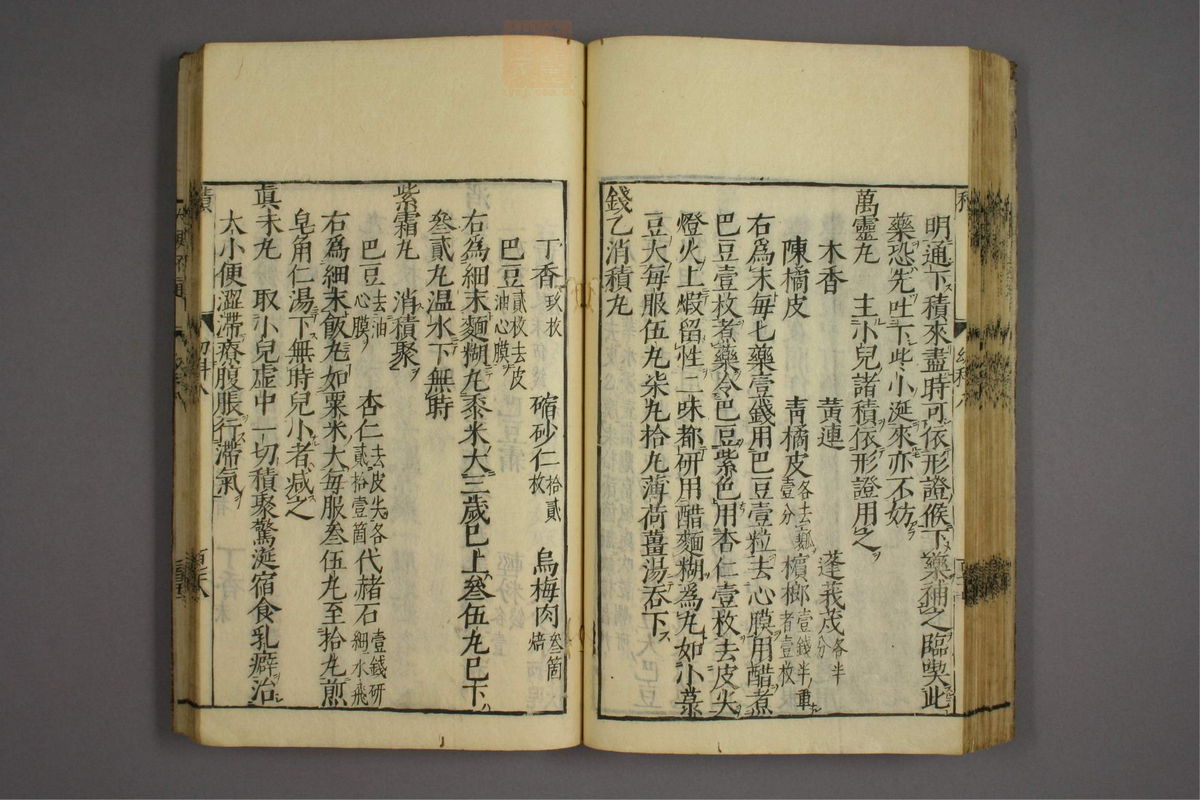 明通下積來盡時可依形證候下藥補之臨喫此
藥恐先吐下此小涎來亦不妨
萬靈丸 主小兒諸積依形證用之
木香 黃連 蓬莪茂各半分
陳橘皮 青橘皮各去瓤壹分 檳榔壹錢半重者壹枚
右爲末每七藥壹錢用巴豆壹粒去心膜用醋煮
巴豆壹枚煮藥令巴豆紫色用杏仁壹枚去皮尖
燈火上煆留性二味都研用醋麵糊爲丸如小菉
豆大每服伍丸柒丸拾丸薄荷薑湯吞下
錢乙消積丸
丁香玖枚 縮砂仁拾貳枚 烏梅肉叁箇焙
巴豆貳枚去皮油心膜
右爲細末麵糊丸黍米大三歲巳上叁伍丸巳下
叁貳丸温水下無時
紫霜丸 消積聚
巴豆去油心膜 杏仁去皮尖各貳拾壹箇 代赭石壹錢研細水飛
右爲細末飯丸如粟米大每服叁伍丸至拾丸煎
皂角仁湯下無時兒小者減之
眞末丸 取小兒虛中一切積聚驚涎宿食乳癖治
太小便澀滯療腹脹行滯氣